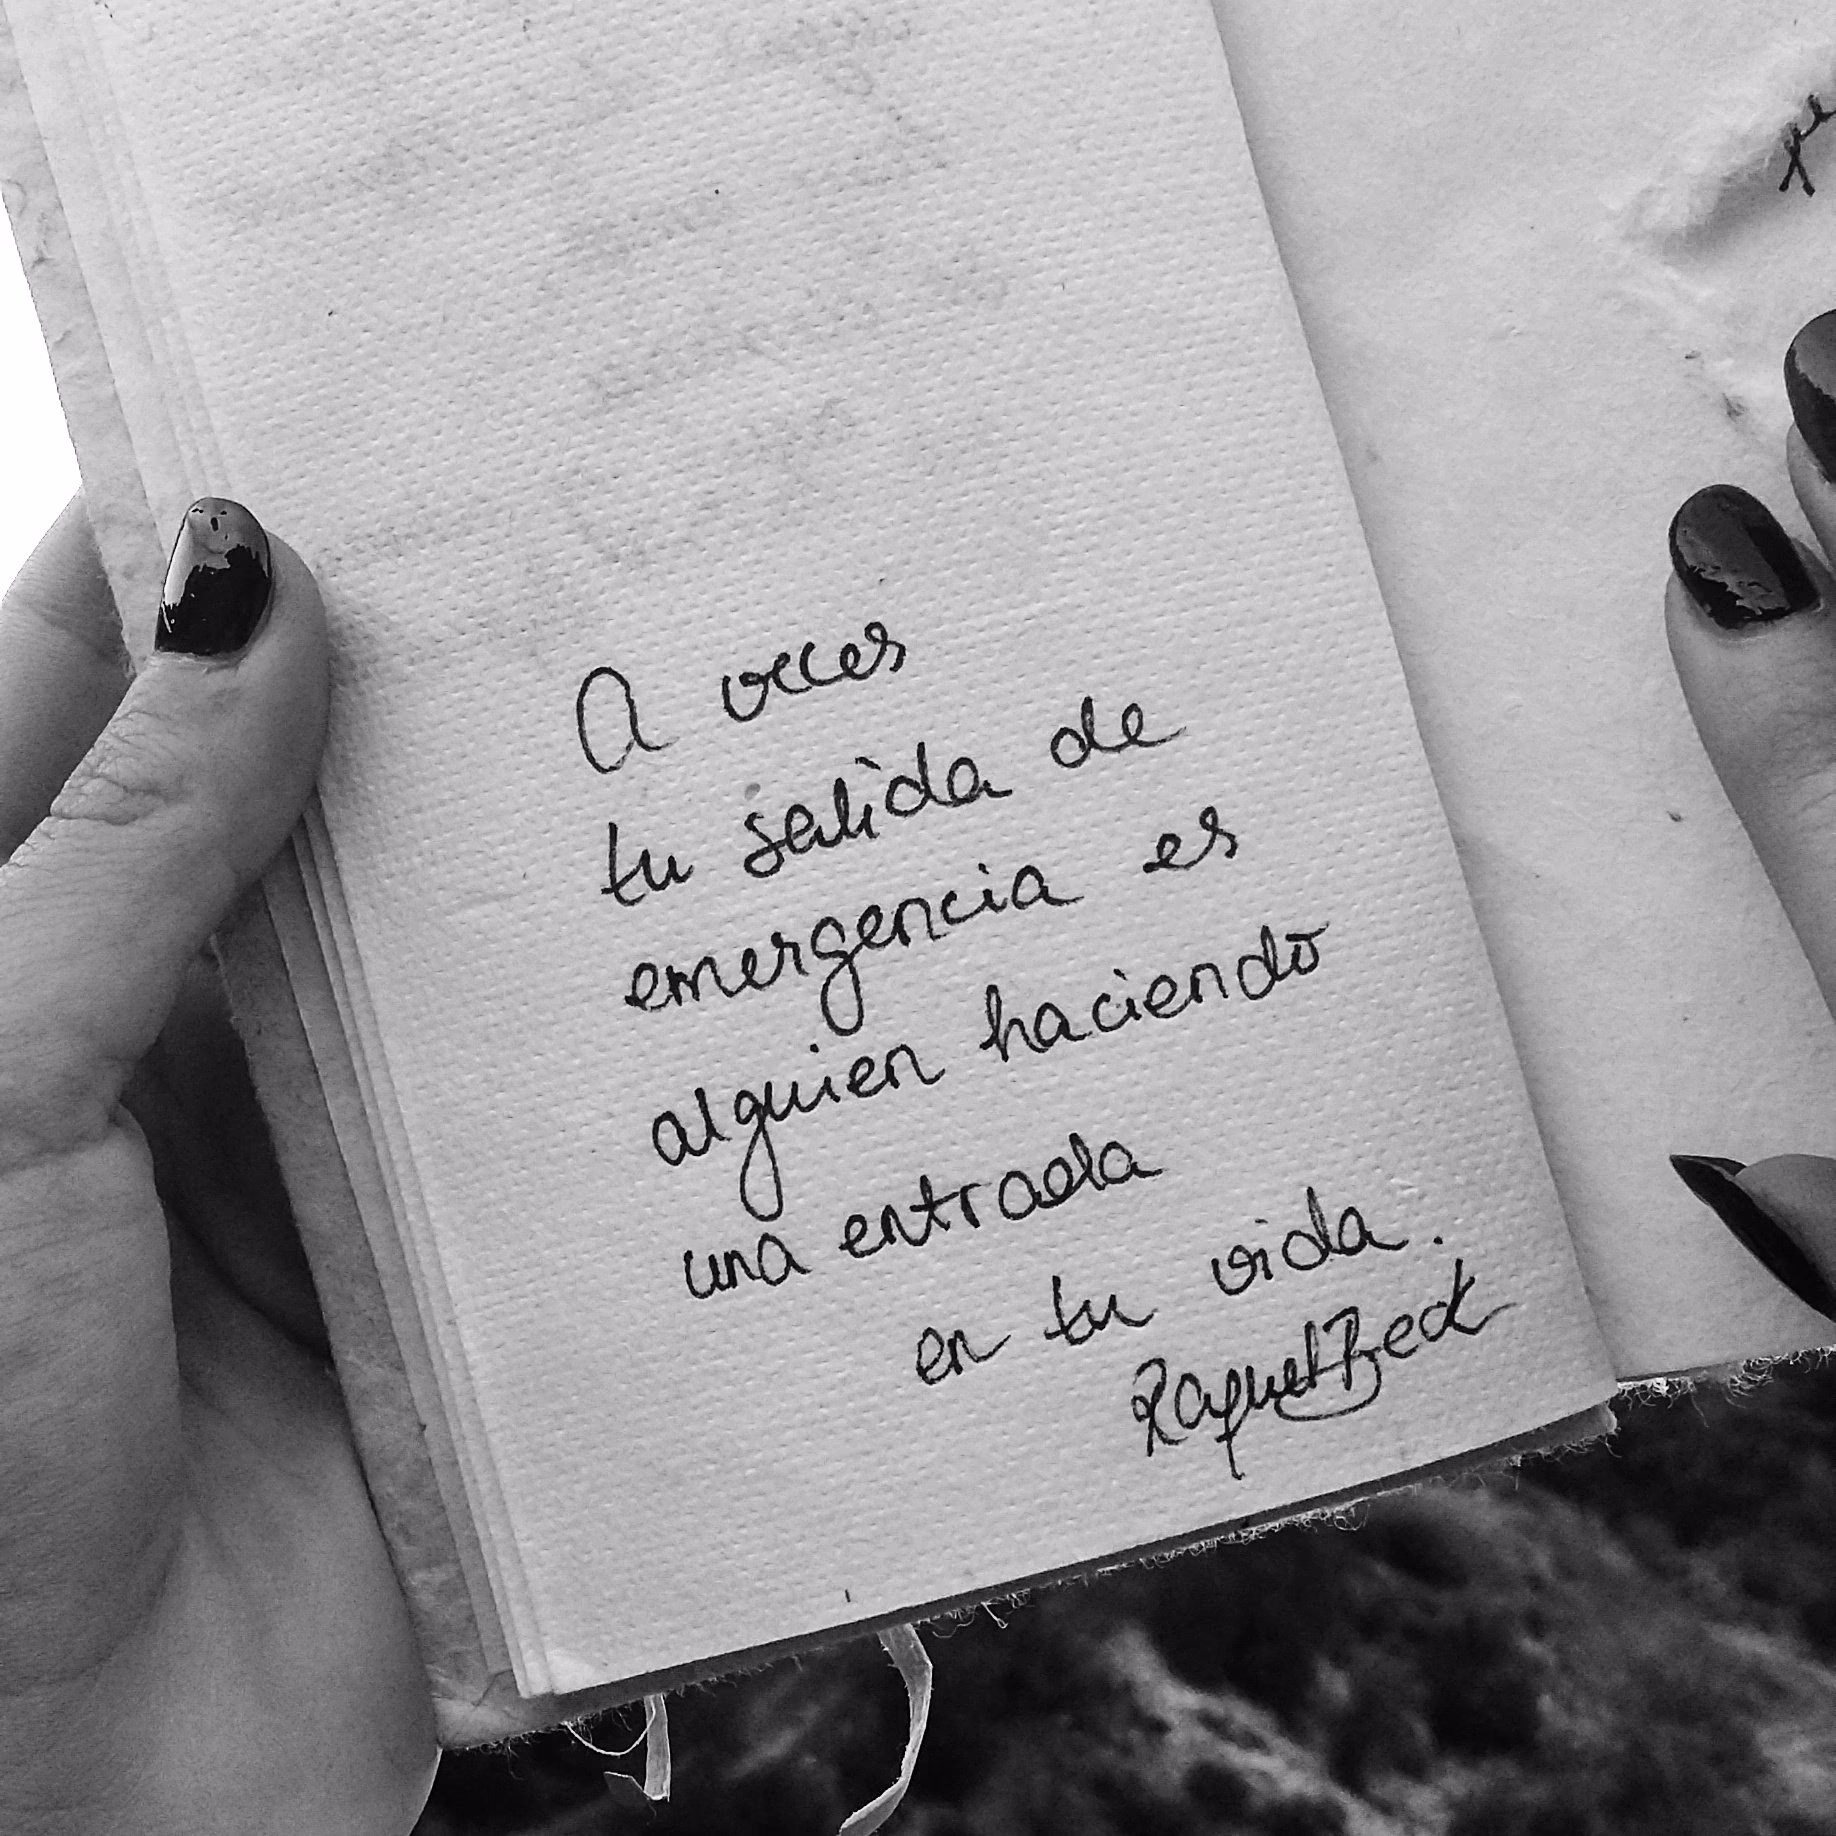 A veces
tu salida de
emergencia es
alguien haciendo
una entrada
en tu vida.
Raquel Beck